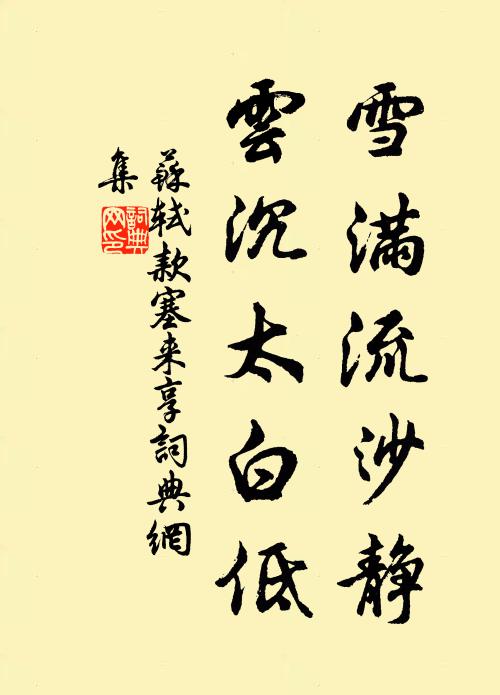 雪滿流沙静
雲沉太白低
蘇軾款塞来享詞典網
集
詞典
网印